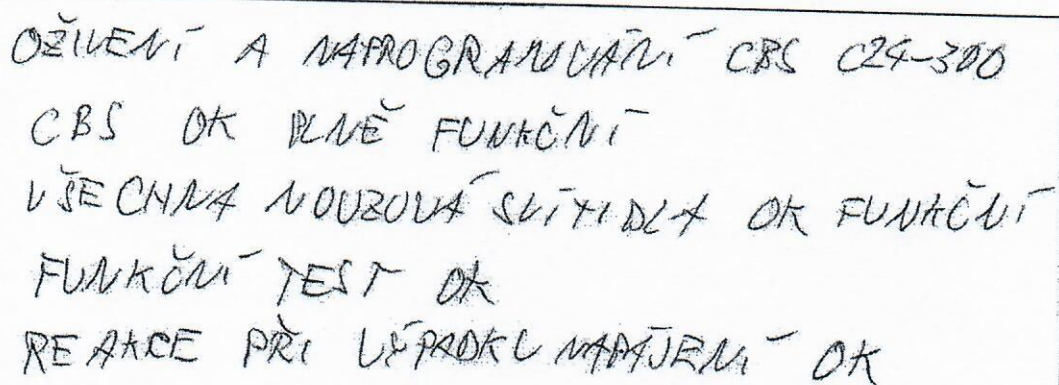 OŽIVENÍ A NAPROGRAMOVÁNÍ CBS C24-300
CBS OK PLNĚ FUNKČNÍ
VŠECHNA NOUZOVÁ SVÍTIDLA OK FUNKČNÍ
FUNKČNÍ TEST OK
REAKCE PŘI VÝPADKU NAPÁJENÍ OK